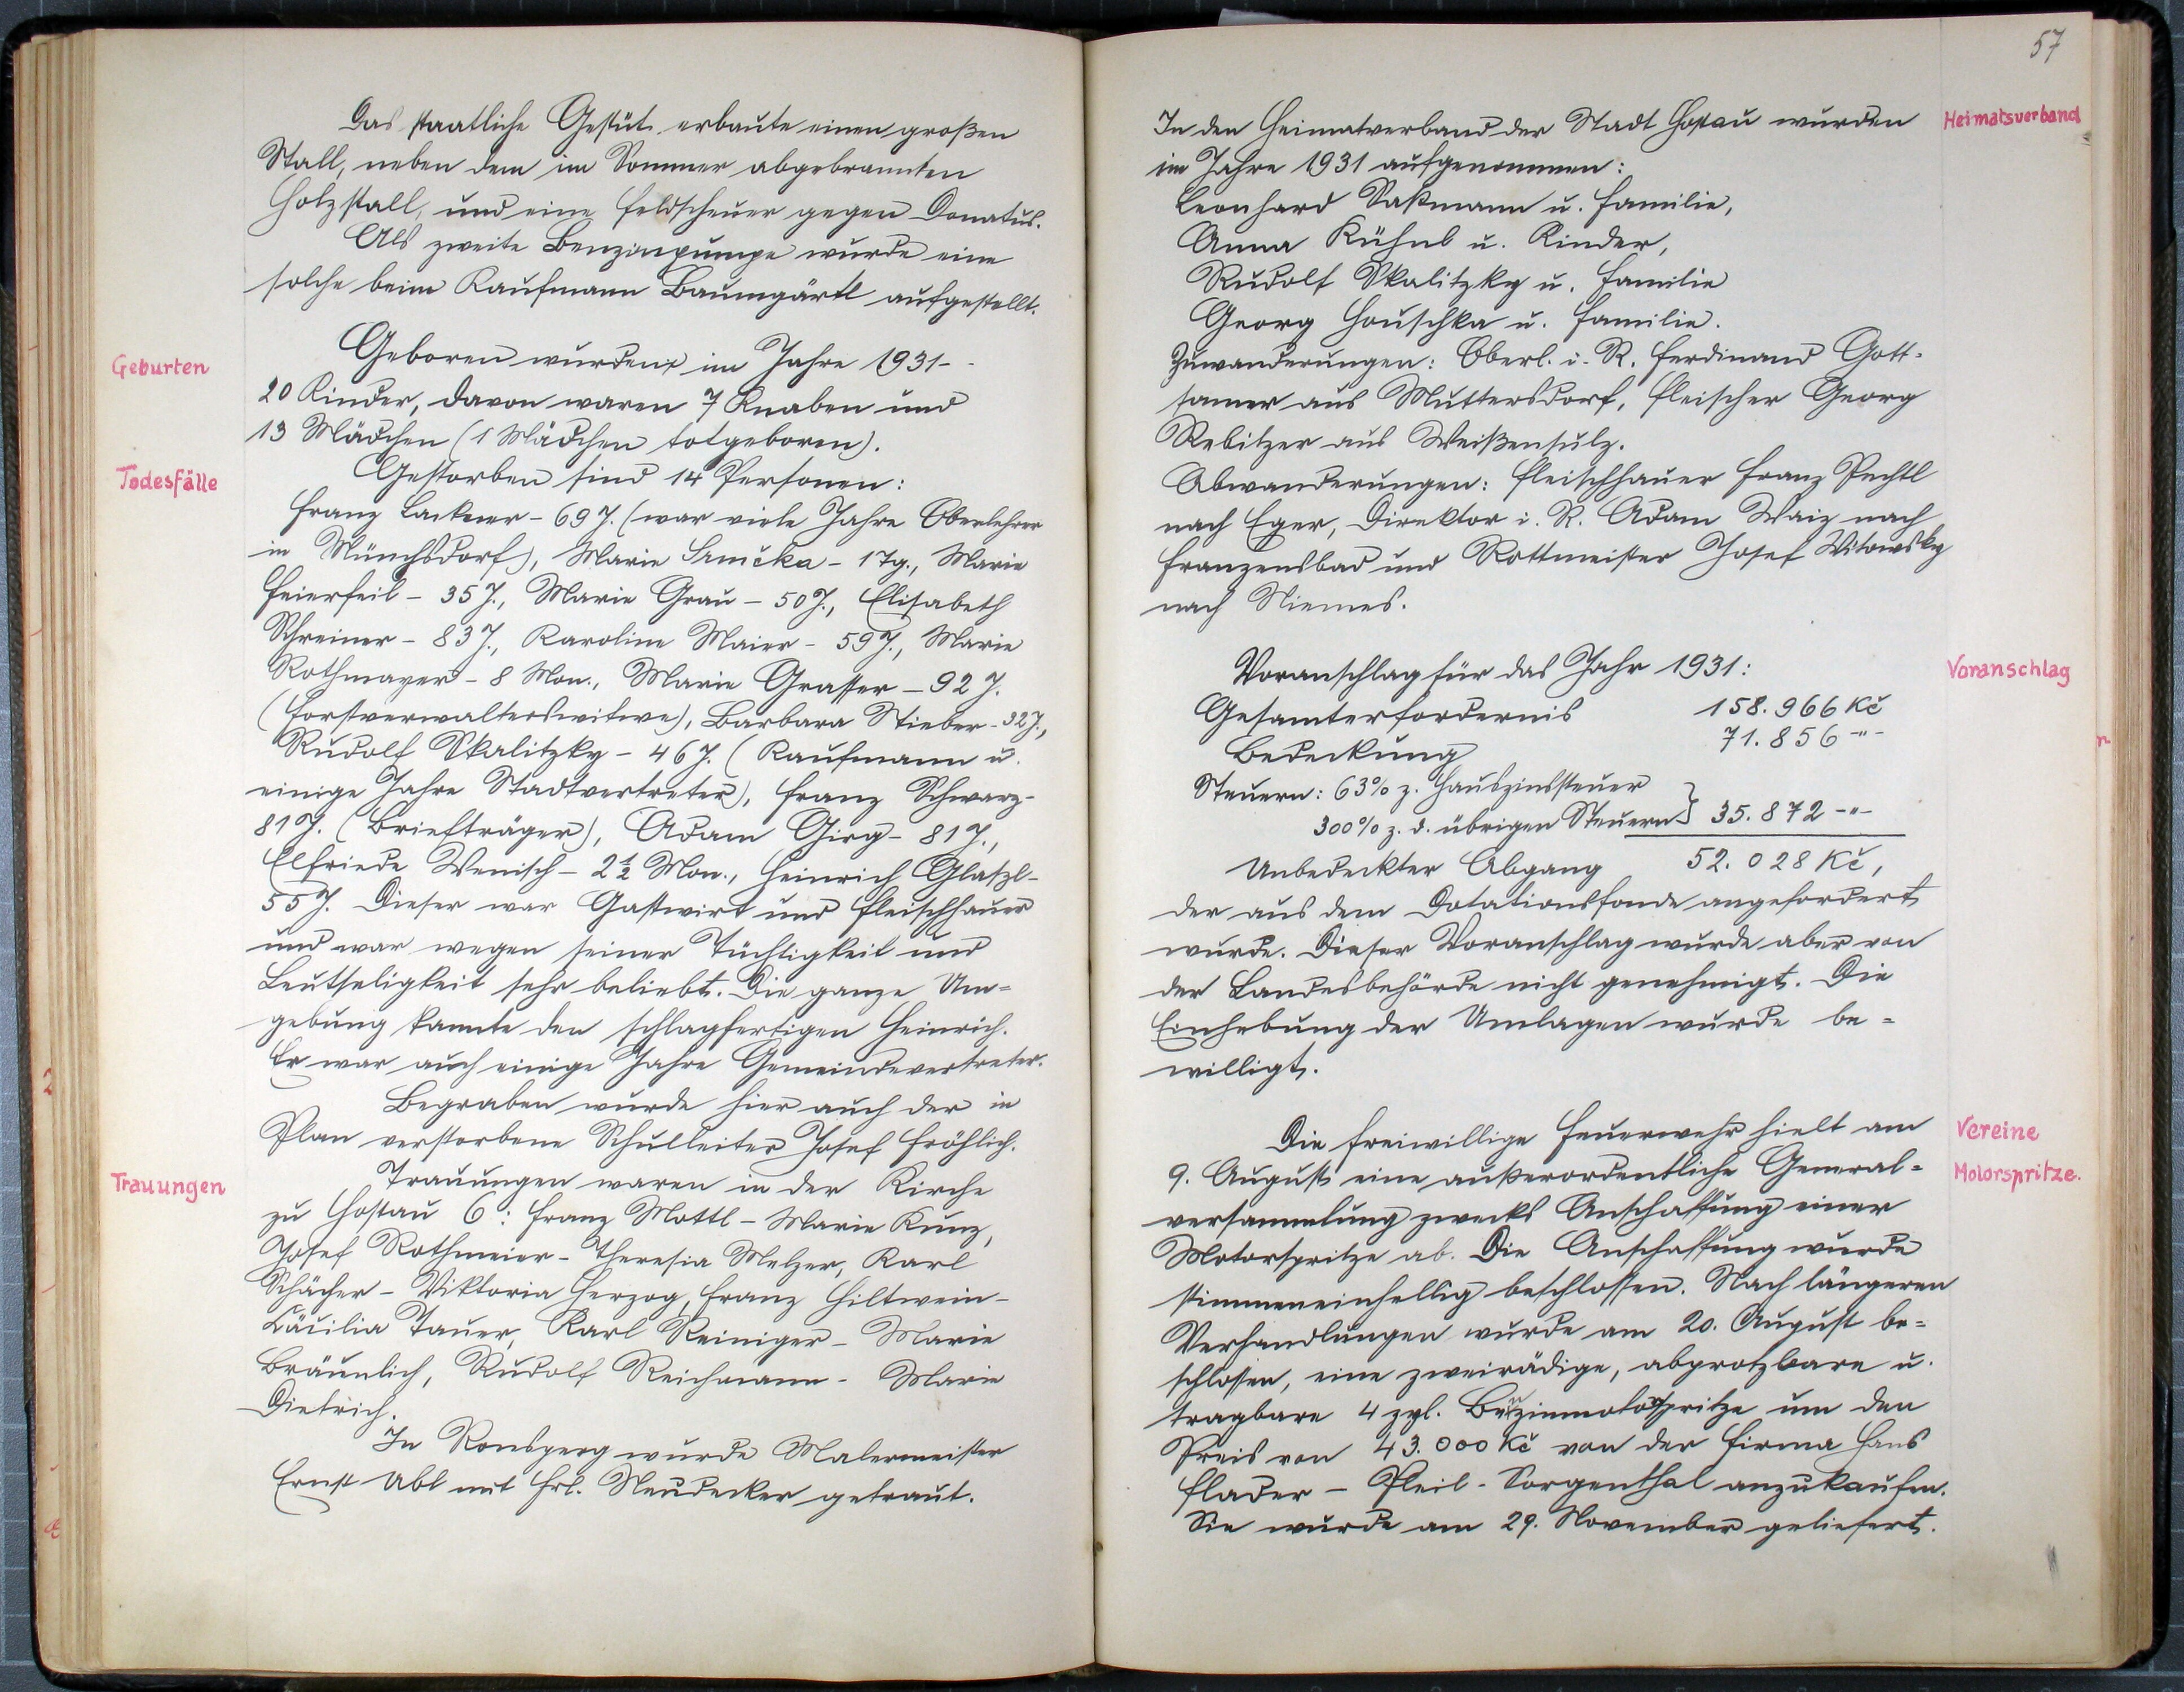 Das staatliche Gestüt erbaute einen großen
Stall, neben dem im Sommer abgebrannten
Holzstall, und eine Feldscheuer gegen Donatus.
Als zweite Benzinpumpe wurde eine
solche beim Kaufmann Baumgärtl aufgestellt.
Geburten
Geboren wurden im Jahre 1931 -
20 Kinder, davon waren 7 Knaben und
13 Mädchen (1 Mädchen totgeboren).
Todesfälle
Gestorben sind 14 Personen:
Franz Lackner - 69 J. (war viele Jahre Oberlehrer
in Münchsdorf), Marie Srnička - 1 Tg., Marie
Feierfeil - 35 J., Marie Grau - 50 J., Elisabeth
Schreiner - 83 J., Karoline Maier - 59 J., Marie
Rothmayer - 8 Mon., Marie Grasser - 92 J.
(Forstverwalterswitwe), Barbara Stieber - 32 J.,
Rudolf Skalitzky - 46 J. (Kaufmann u.
einige Jahre Stadtvertreter), Franz Schwarz -
81 J. (Briefträger), Adam Girg - 81 J.,
Elfriede Wenisch - 2½ Mon., Heinrich Glaszl -
55 J. Dieser war Gastwirt und Fleischhauer
und war wegen seiner Tüchtigkeit und
Leutseligkeit sehr beliebt. Die ganze Um=
gebung kannte den schlagfertigen Heinrich.
Er war auch einige Jahre Gemeindevertreter.
Begraben wurde hier auch der in
Plan verstorbene Schulleiter Josef Fröhlich.
Trauungen
Trauungen waren in der Kirche
zu Hostau 6: Franz Mottl - Marie Kunz,
Josef Rothmeier - Theresia Melzer, Karl
Schächer - Viktoria Herzog, Franz Hiltwein -
Cäcilia Tauer, Karl Reiniger - Marie
Bräunlich, Rudolf Reichmann - Marie
Dietrich.
In Ronsperg wurde Malermeister
Ernst Abl mit Frl. Neudecker getraut.
57
Heimatsverband
In den Heimatverband der Stadt Hostau wurden
im Jahre 1931 aufgenommen:
Leonhard Saßmann u. Familie,
Anna Kühnl u. Kinder,
Rudolf Skalitzky u. Familie
Georg Houschka u. Familie.
Zuwanderungen: Oberl. i. R. Ferdinand Gott=
samer aus Muttersdorf, Fleischer Georg
Rebitzer aus Weißensulz.
Abwanderungen: Fleischhauer Franz Pechtl
nach Eger, Direktor i. R. Adam Waiz nach
Franzensbad und Rottmeister Josef Witowsky
nach Niemes.
Voranschlag
Voranschlag für das Jahr 1931:
Gesamterfordernis 158.966 Kč
Bedeckung 71.856 -"-
Steuern: 63% z. Hauszinssteuer
300% z. d. übrigen Steuern } 35.872 -"-
Unbedeckter Abgang 52.028 Kč,
der aus dem Dotationsfonde angefordert
wurde. Dieser Voranschlag wurde aber von
der Landesbehörde nicht genehmigt. Die
Einhebung der Umlagen wurde be=
willigt.
Vereine
Motorspritze.
Die freiwillige Feuerwehr hielt am
9. August eine außerordentliche General=
versammlung zwecks Anschaffung einer
Motorspritze ab. Die Anschaffung wurde
stimmeneinhellig beschlossen. Nach längeren
Verhandlungen wurde am 20. August be=
schlossen, eine zweirädige, abprotzbare u.
tragbare 4 zyl. Benzinmotorspritze um den
Preis von 43.000 Kč von der Firma Hans
Flader - Pleil-Sorgenthal anzukaufen.
Sie wurde am 29. November geliefert.